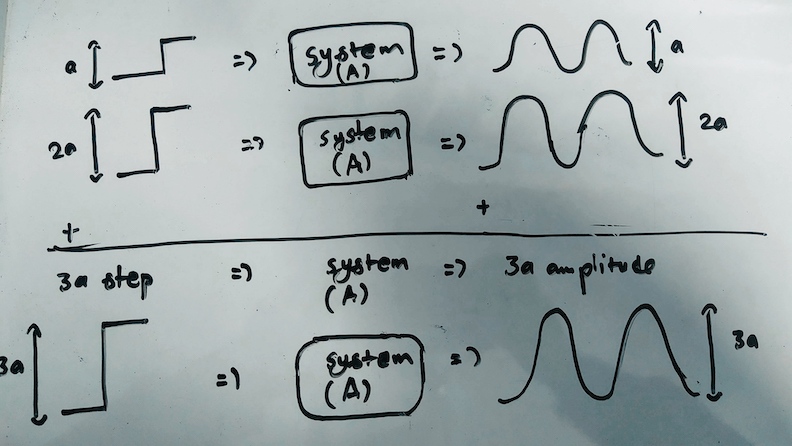 a => system (A) => a
2a => system (A) => 2a
+ +
3a step => system (A) => 3a amplitude
3a => system (A) => 3a